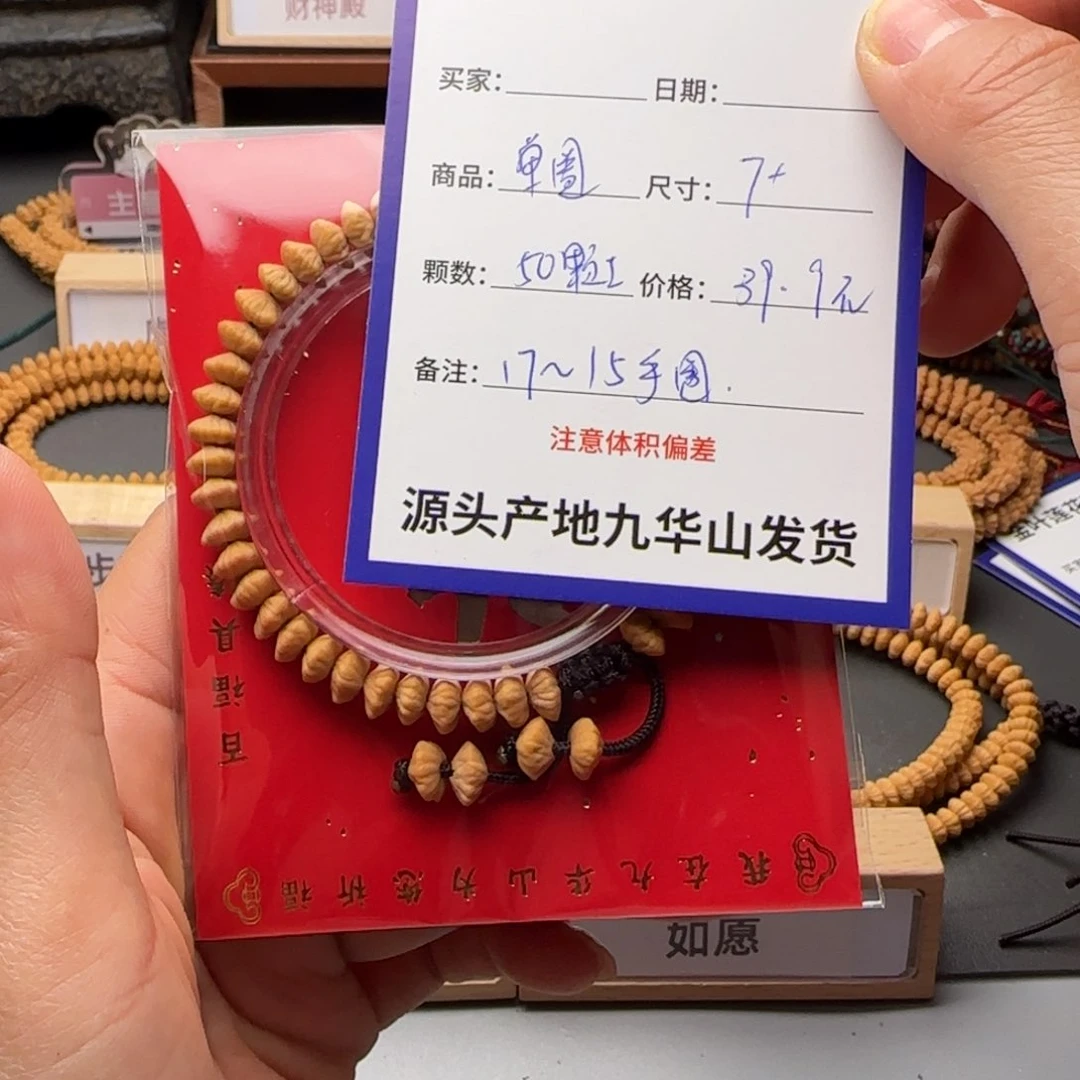 财神殿
主
买家: 日期:
商品: 单圈 尺寸: 7+
颗数: 50颗± 价格: 39.9元
备注: 17~15手围.
注意体积偏差
源头产地九华山发货
百福具
我在九华山为您祈福
如愿